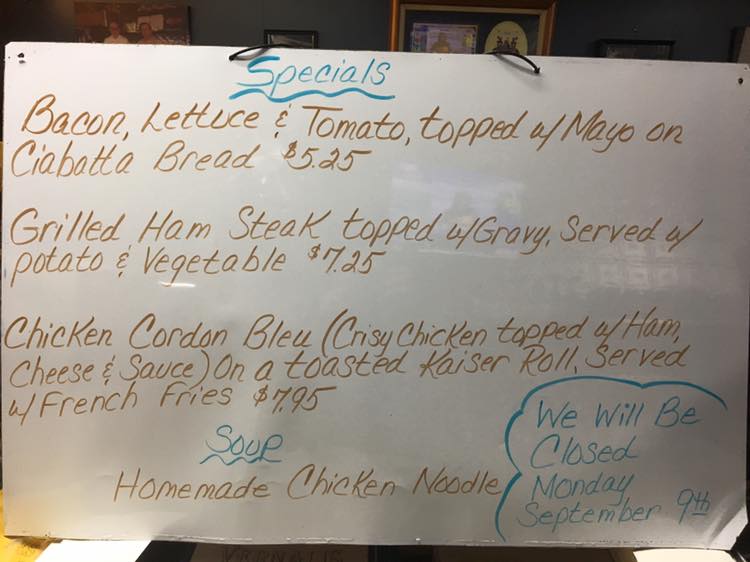 Specials
Bacon, Lettuce & Tomato, topped w/ Mayo on
Ciabatta Bread $5.25
Grilled Ham Steak topped w/Gravy, Served w/
potato & Vegetable $7.25
Chicken Cordon Bleu (Crisy Chicken topped w/ Ham,
Cheese & Sauce) On a toasted Kaiser Roll, Served
w/ French Fries $7.95
Soup
Homemade Chicken Noodle
We Will Be
Closed
Monday
September 9th